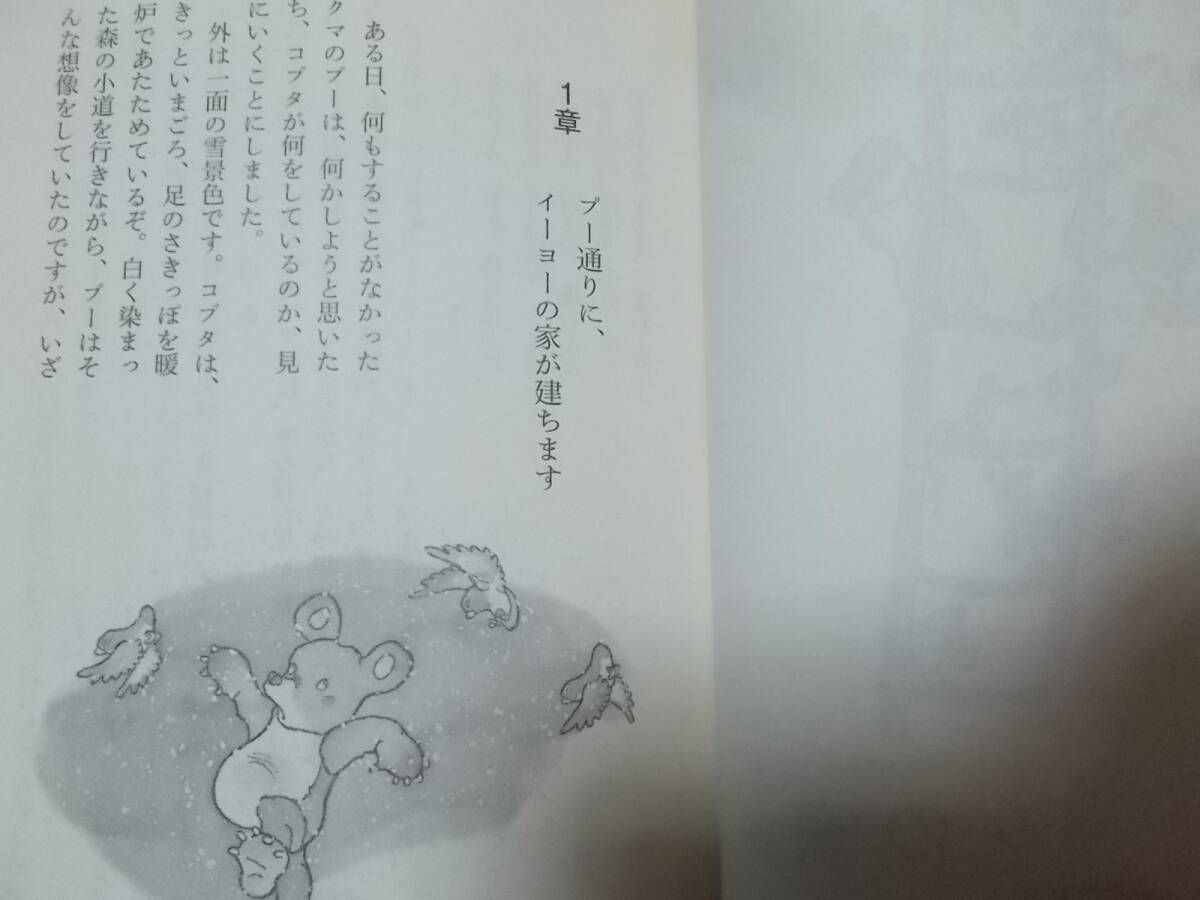 1章
プー通りに、
イーヨーの家が建ちます
ある日、何もすることがなかった
クマのプーは、何かしようと思いた
ち、コブタが何をしているのか、見
にいくことにしました。
外は一面の雪景色です。コブタは、
きっといまごろ、足のさきっぽを暖
炉であたためているぞ。白く染まっ
た森の小道を行きながら、プーはそ
んな想像をしていたのですが、いざ